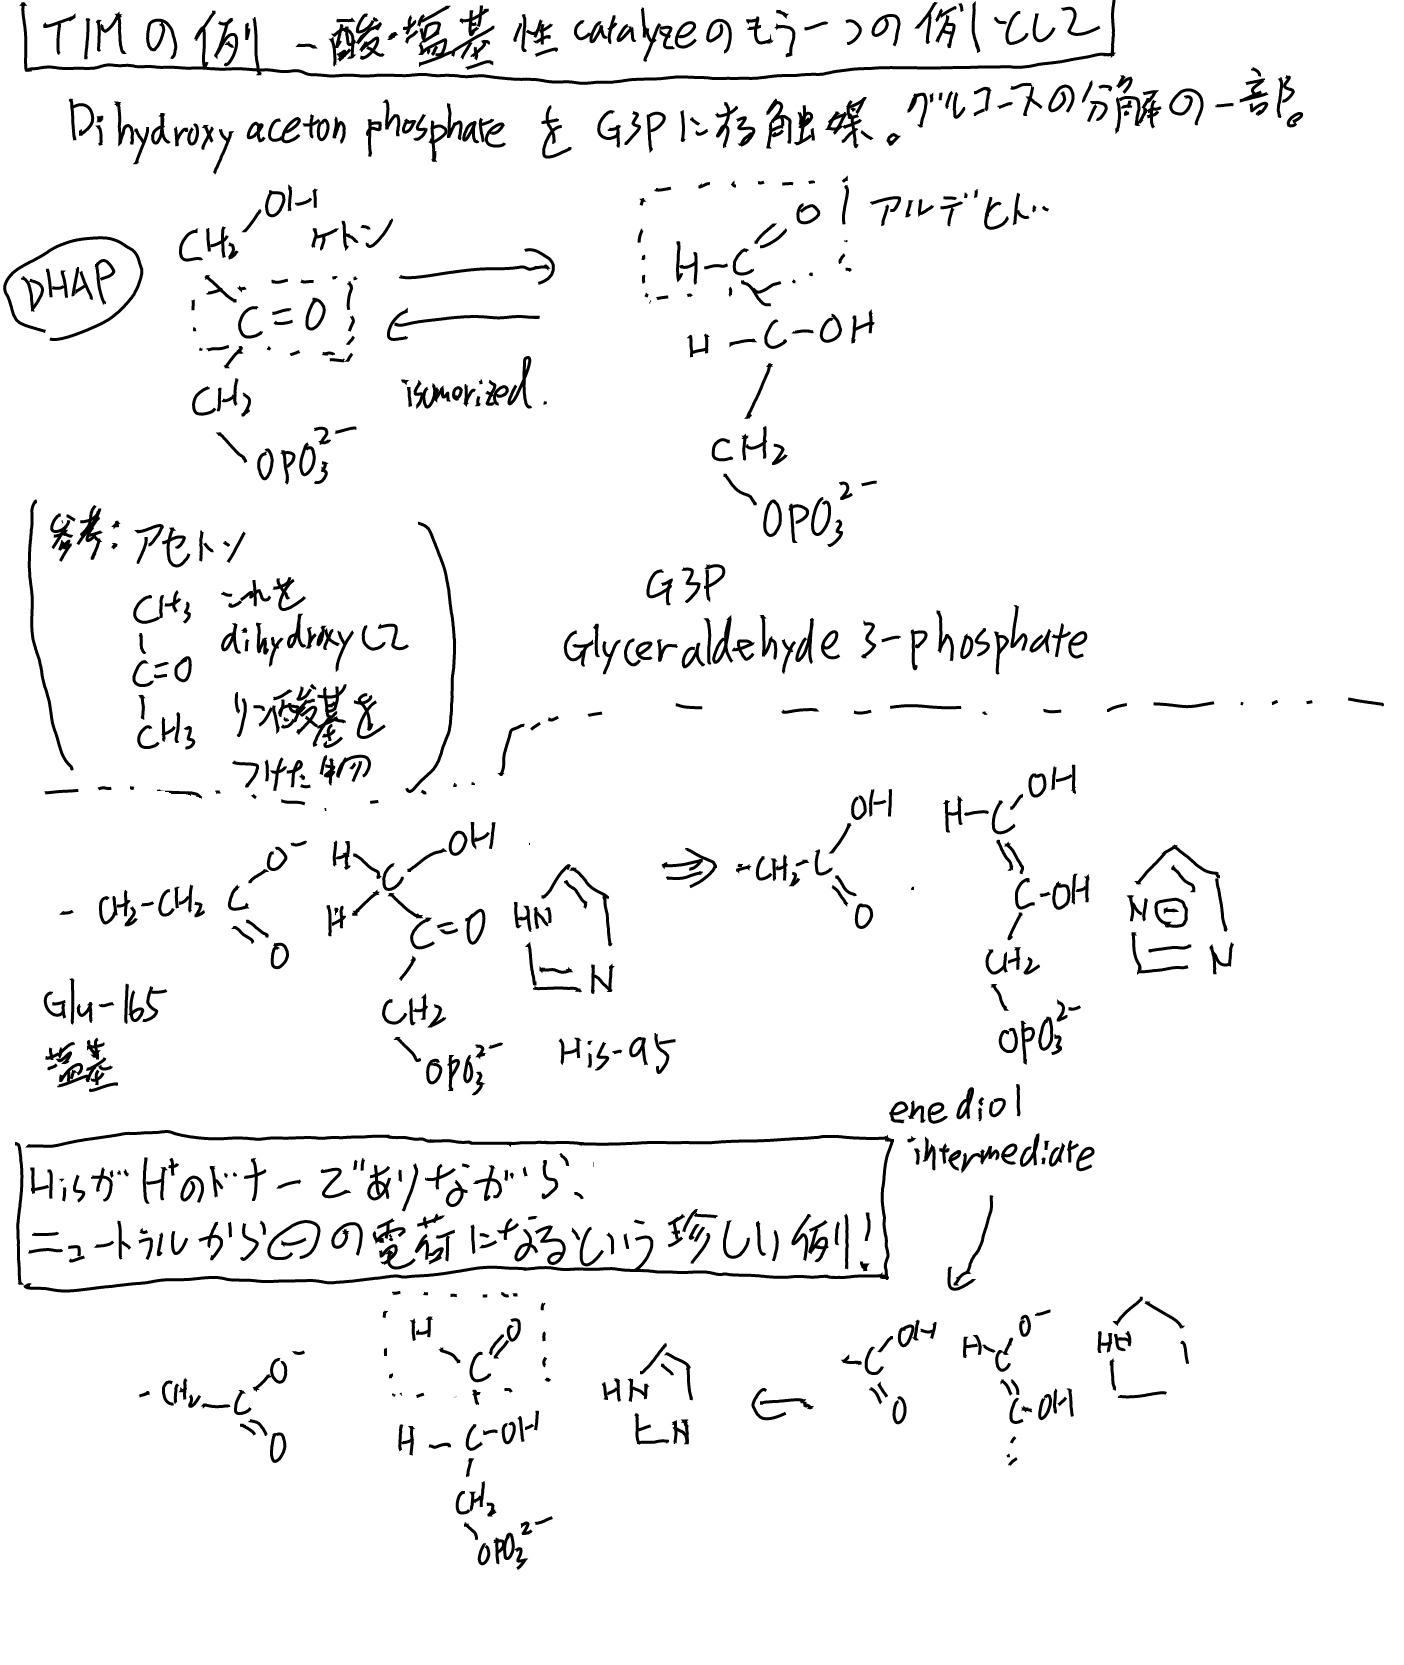 TIMの例 – 酸・塩基性catalyzeのもう一つの例として
Dihydroxyaceton phosphate を G3Pにする触媒。グルコースの分解の一部。
DHAP
CH₂ OH
ケトン
C=O
CH₂
OPO₃²⁻
isomorized.
アルデヒド
H-C O
H-C-OH
CH₂
OPO₃²⁻
G3P
Glyceraldehyde 3-phosphate
参考: アセトン
CH₃ これを
dihydroxyして
C=O
CH₃ リン酸基を
つけた物
- CH₂-CH₂ C O⁻
O
Glu-165
塩基
H C OH
H
C=O
CH₂
OPO₃²⁻
HN
N
His-95
-CH₂-C OH
O
H-C OH
C-OH
CH₂
OPO₃²⁻
N ⊖
N
enediol
intermediate
HisがH⁺のドナーでありながら、
ニュートラルから⊖の電荷になるという珍しい例!
-C OH
O
H-C O⁻
C-OH
HN
-CH₂-C O⁻
O
H C O
H-C-OH
CH₂
OPO₃²⁻
HN
N